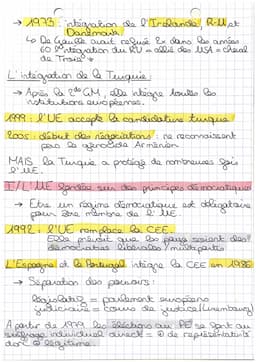 → 1973 : intégration de l'Irlande, R-U et
Danemark
↳ De Gaulle avait refusé 2x dans les années
60 l'intégration du RU = allié des USA = cheval
de Troie
L'intégration de la Turquie :
→ Après la 2nde GM, elle intègre toutes les
institutions européennes.
1999 : l'UE accepte la candidature turque
2005 : début des négociations : ne reconnaissent
pas le génocide Arménien
MAIS la Turquie a protégé de nombreuses fois
l'UE.
I/ L'UE fondée sur des principes démocratiques
→ Etre un régime démocratique est obligatoire
pour être membre de l'UE.
1992 : l'UE remplace la CEE.
Elle prévoit que les pays soient des
démocraties libérales
L'Espagne et le Portugal intègre la CEE en 1986
→ Séparation des pouvoirs :
législatif = parlement européen
judiciaire = cours de justice (Luxembourg)
A partir de 1979, les élections au PE se font au
suffrage individuel direct = de représentativité
donc légitime.